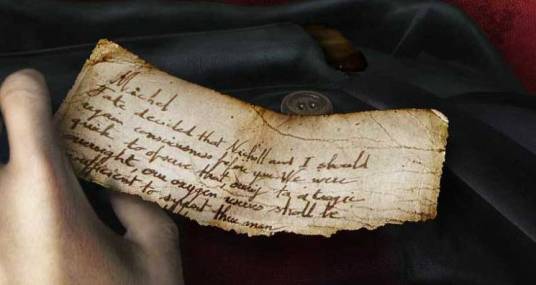 Michel
Fate decided that Nicholl and I should
regain consciousness before you We were
quick to observe that owing to a tragic
oversight, our oxygen reserves shall be
insufficient to support three men